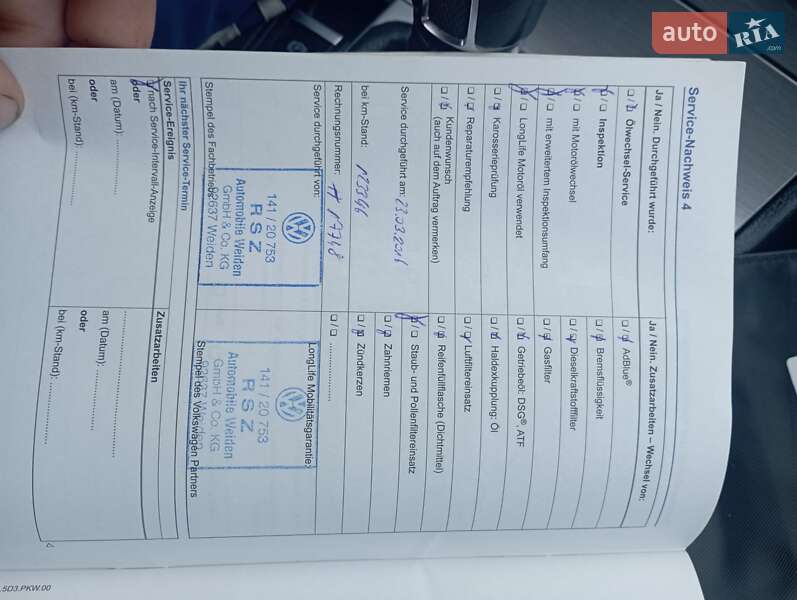 auto RIA .com
Service-Nachweis 4
Ja / Nein. Durchgeführt wurde:
Ölwechsel-Service
Inspektion
mit Motorölwechsel
mit erweitertem Inspektionsumfang
LongLife Motoröl verwendet
Karosserieprüfung
Reparaturempfehlung
Kundenwunsch
(auch auf dem Auftrag vermerken)
Service durchgeführt am: 23.03.2016
bei km-Stand: 123346
Rechnungsnummer: # 17748
Service durchgeführt von:
141 / 20 753
RSZ
Automobile Weiden
GmbH & Co. KG
92637 Weiden
Stempel des Fachbetriebs
Ja / Nein. Zusatzarbeiten – Wechsel von:
AdBlue®
Bremsflüssigkeit
Dieselkraftstofffilter
Gasfilter
Getriebeöl: DSG®, ATF
Haldexkupplung: Öl
Luftfiltereinsatz
Reifenfüllflasche (Dichtmittel)
Staub- und Pollenfiltereinsatz
Zahnriemen
Zündkerzen
....................
LongLife Mobilitätsgarantie:
141 / 20 753
RSZ
Automobile Weiden
GmbH & Co. KG
92637 Weiden
Stempel des Volkswagen Partners
Ihr nächster Service-Termin
Service-Ereignis
nach Service-Intervall-Anzeige
oder
am (Datum): ....................
oder
bei (km-Stand): ....................
Zusatzarbeiten
....................
am (Datum): ....................
oder
bei (km-Stand): ....................
.5D3.PKW.00